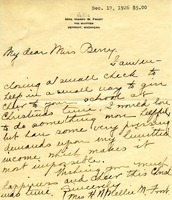 Dec. 17, 1926 $5.00
MRS. HARRY W. FROST
THE WHITTIER
DETROIT, MICHIGAN
My dear Miss Berry,
I am en-
closing a small check to
help in a small way to give
cheer to your school at
Christmas time. I would
like to do something more helpful
but have some very pressing
demands upon my limited
income, which makes it
most impossible.
Wishing you much
happiness and cheer this Xmas
time. Sincerely
Mrs H W Frost